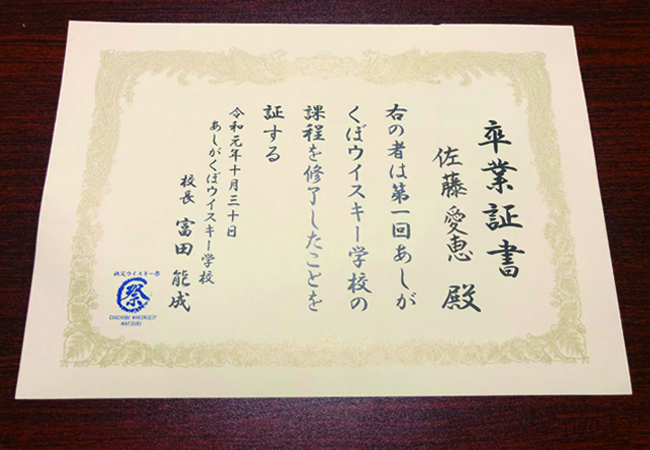 卒業証書
佐藤愛恵 殿
右の者は第一回あしが
くぼウイスキー学校の
課程を修了したことを
証する
令和元年十月三十日
あしがくぼウイスキー学校
校長 富田能成
秩父ウイスキー祭
祭
CHICHIBU WHISK(E)Y
MATSURI